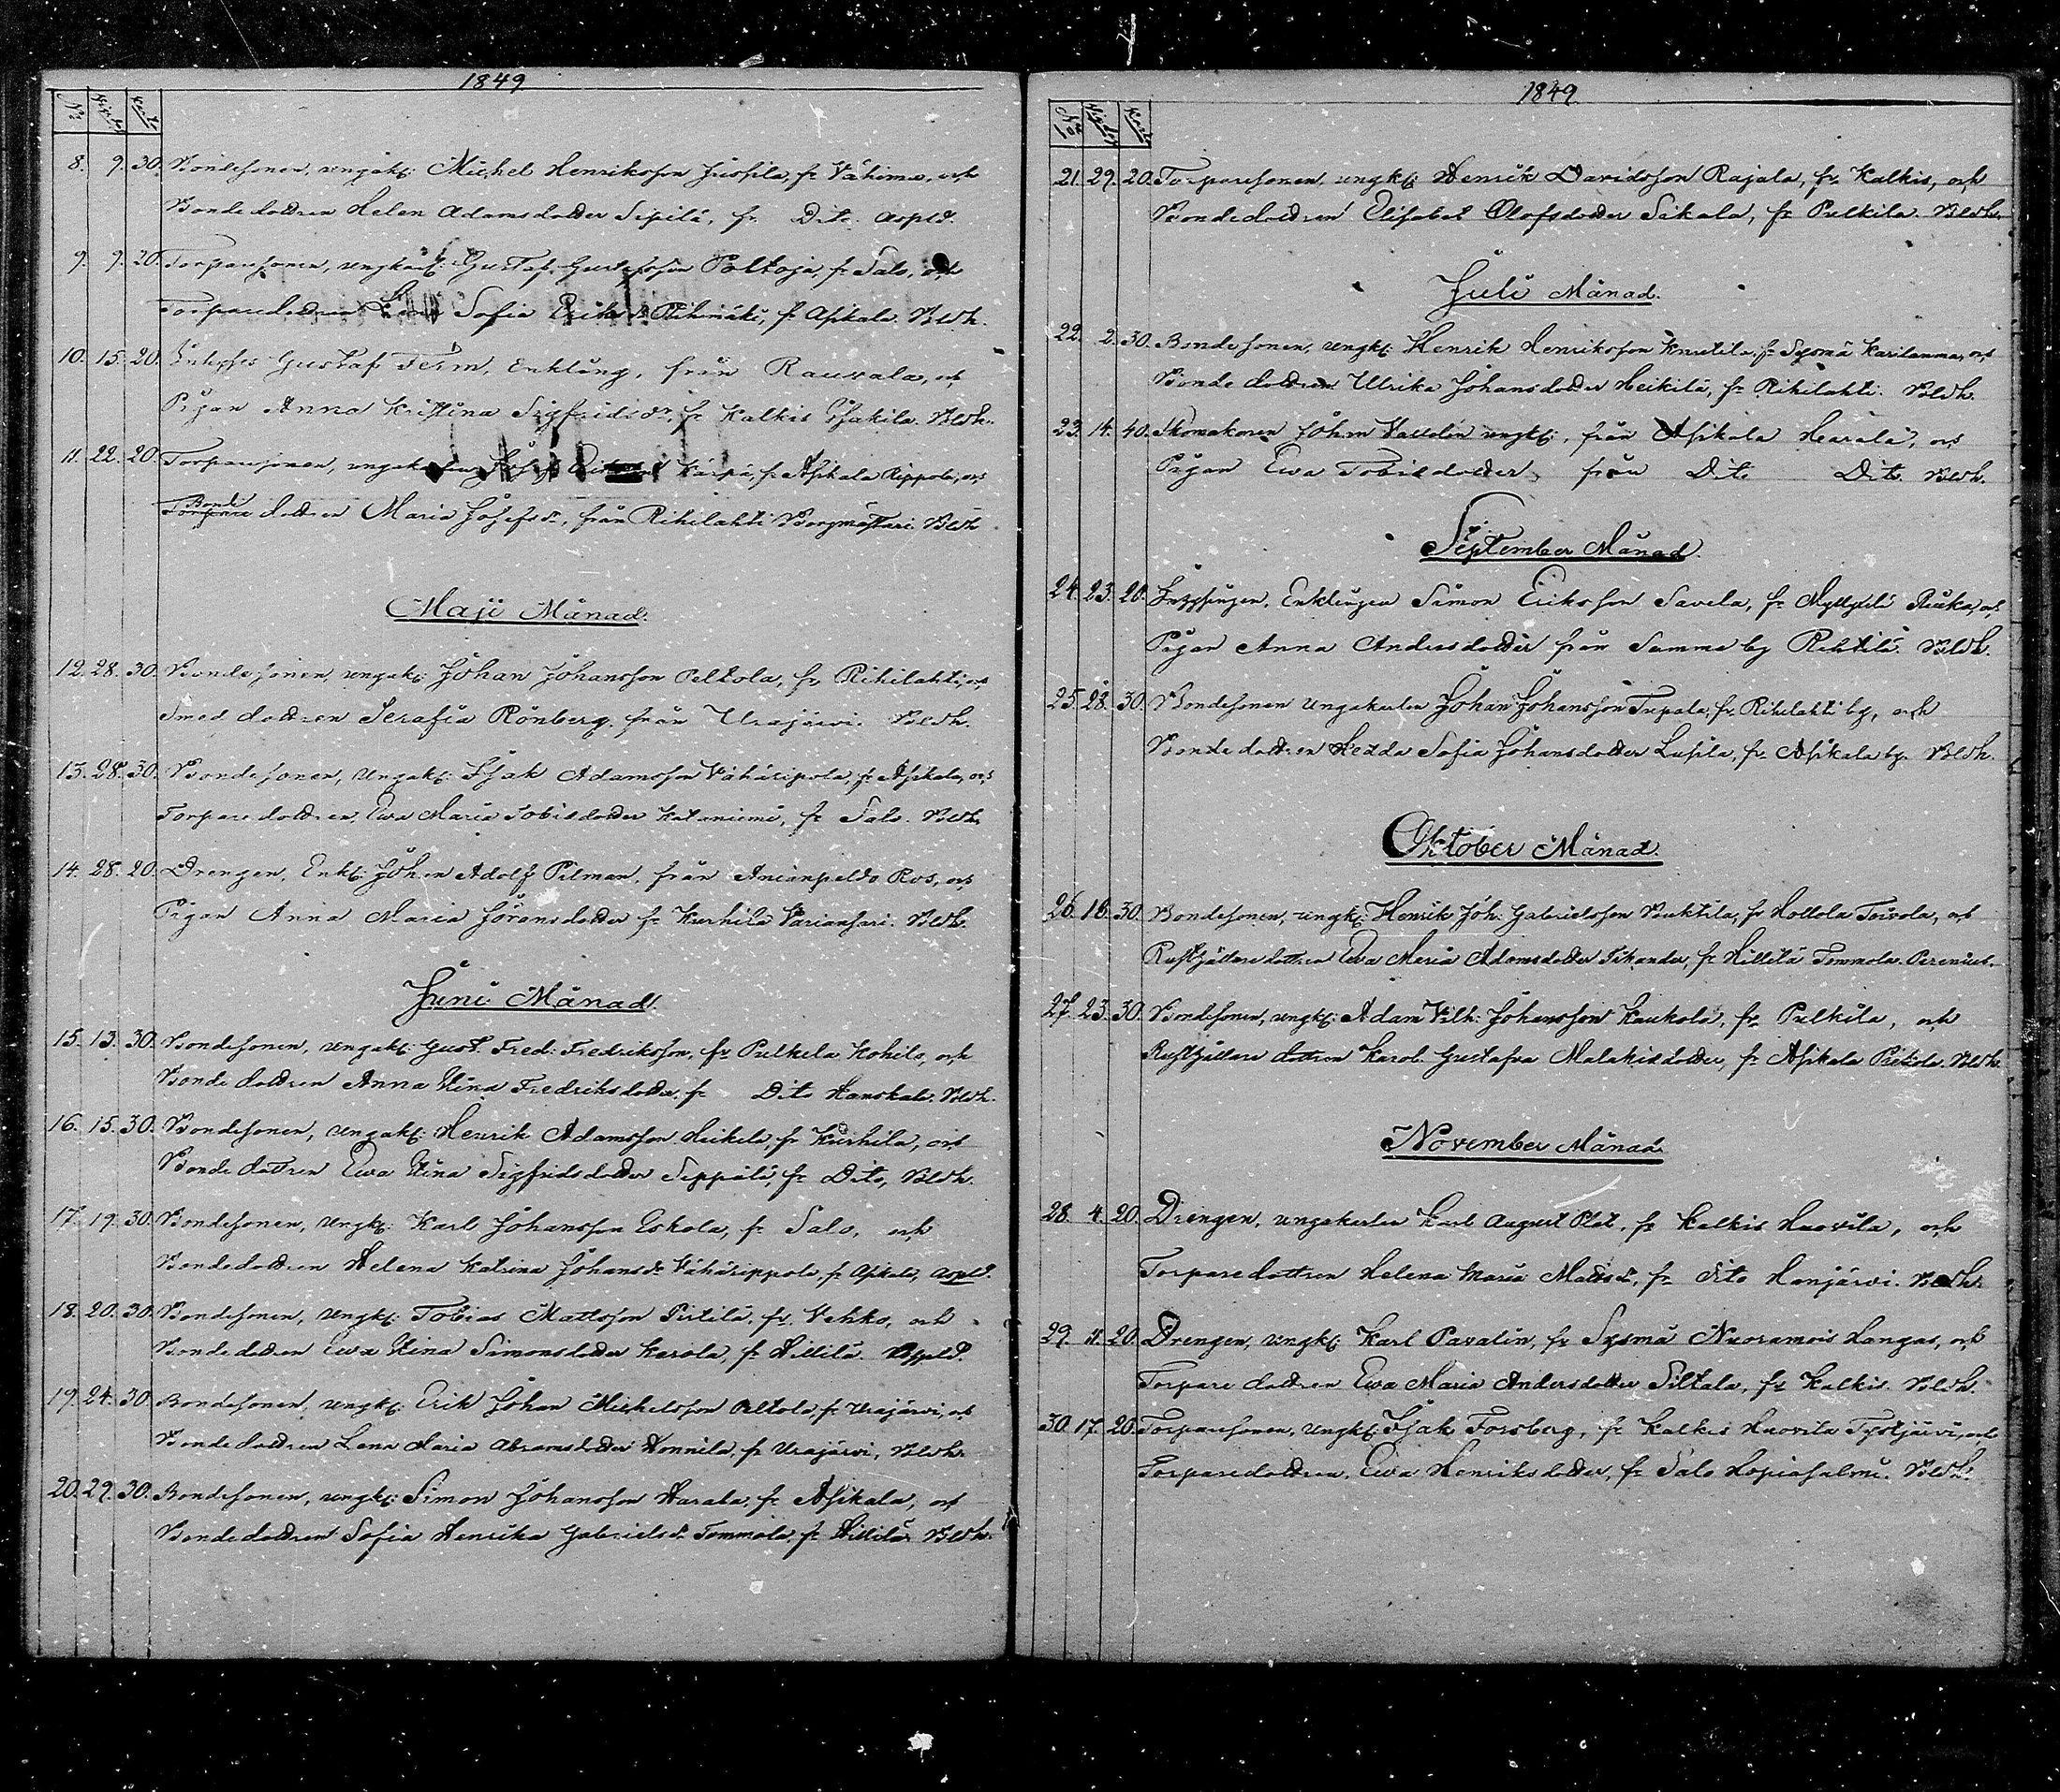 1849
No Vigde
8. 9. 30. Bondesonen, ungek: Michel Henriksson Juosila, fr Vähimä, och
Bondedottren Helen Adamsdotter Sipilä, fr Dito. Aspld.
9. 9. 20. Torparesonen, ungkarl: Gustaf Gustafsson Poltoja, fr Salo, och
Torparedottren Sofia Eriksdr Rihimäki, fr Asikala. Bldh.
10. 15. 20. Inhyses Gustaf Term, Enkling, från Rauvala, och
Pigan Anna Kristina Sigfridsdr, fr Kalkis Isakila. Bldh.
11. 22. 20. Torparesonen, Kärpä, fr Asikala Rippola, och
Bonde
Torpare dottren Maria Josefsdr, från Rihilahti Borgmästari Bldh
Maji Månad.
12. 28. 30. Bondesonen, ungek: Johan Johansson Peltola, fr Rihilahti, och
Smed dottren Serafia Rönberg, från Urajärvi. Bldh.
13. 28. 30. Bondesonen, ungek: Isak Adamsson Vähäripola, fr Asikala, och
Torparedottren, Eva Maria Tobisdotter Kataniemi, fr Salo. Bldh.
14. 28. 20. Drengen, Enkl: Johan Adolf Pilman, från Anianpeldo Ros, och
Pigan Anna Maria Göransdotter fr Kurhila Variansari. Bldh.
Juni Månad.
15. 13. 30. Bondesonen, ungek: Gust. Fred: Fredriksson, fr Pulkila Kohila, och
Bonde dottren Anna Stina Fredriksdotter, fr Dito Hanskala. Bldh.
16. 15. 30. Bondesonen, ungek: Henrik Adamsson Heikela, fr Kurhila, och
Bonde dottren Eva Stina Sigfridsdotter Seppälä, fr Dito, Bldh.
17. 19. 30. Bondesonen, Ungk: Karl Johansson Eskola, fr Salo, och
Bondedottren Helena Katrina Johansdr Vähärippola, fr Asikala, Aspld.
18. 20. 30. Bondesonen, Ungk: Tobias Mattsson Pirtilä, fr Vehko, och
Bondedottren Eva Stina Simonsdotter Kerola, fr Hillilä. Aspld.
19. 24. 30. Bondesonen, ungk: Erik Johan Michelsson Peltola, fr Urajärvi, och
Bondedottren Lena Maria Abramsdotter Honnila, fr Urajärvi, Bldh.
20. 29. 30. Bondesonen, ungk: Simon Johansson Harala, fr Asikala, och
Bondedottren Sofia Henrika Gabrielsdr Tommola, fr Hillilä. Bldh.
1849
No Vigde
21. 29. 20. Torparesonen, ungk: Henrik Davidsson Rajala, fr Kalkis, och
Bondedottren Elisabet Olofsdotter Sikala, fr Pulkila. Bldh.
Juli Månad.
22. 2. 30. Bondesonen, ungk: Henrik Henriksson Knutila, fr Sysmä Karilanmaa, och
Bonde dottren Ulrika Johansdotter Heikilä, fr Rihilahti. Bldh.
23. 14. 40. Skomakaren Johan Vasselin ungk:, från Asikala Harala, och
Pigan Eva Tobisdotter, från Dito Dito. Bldh.
September Månad.
24. 23. 20. Enklingen Simon Eriksson Savela, fr Myllylä och
Pigan Anna Andersdotter från Samma by Rehtilä. Bldh.
25. 28. 30. Bondesonen Ungekarlen Johan Johansson Tupala, fr Rihilahti by, och
Bonde dottren Hedda Sofia Johansdotter Lusila, fr Asikala by. Bldh.
Oktober Månad.
26. 16. 30. Bondesonen, ungk: Henrik Joh: Gabrielsson fr Hollola Toivola, och
Rusthållare dottren Eva Maria Adamsdotter Sikander, fr Hillilä Tommola. Perenius.
27. 23. 30. Bondesonen, ungk: Adam Vilh: Johansson Kaukola, fr Pulkila, och
Rusthållare dottren Karol. Gustafva Malakisdotter, fr Asikala Bldh.
November Månad
28. 4. 20. Drengen, ungekarlen Karl August fr Kalkis Huovila, och
Torparedottren Helena Maria Mattsdr, fr Dito Hanjärvi. Bldh.
29. 11. 20. Drengen, ungk: Karl Pavalin, fr Sysmä Nuoramois Hangas, och
Torpare dottren Eva Maria Andersdotter Siltala, fr Kalkis. Bldh.
30. 17. 20. Torparesonen, Ungk: Isak Forsberg, fr Kalkis Huovila Tystjärvi, och
Torparedottren, Eva Henriksdotter, fr Salo Hopiasalmi. Bldh.